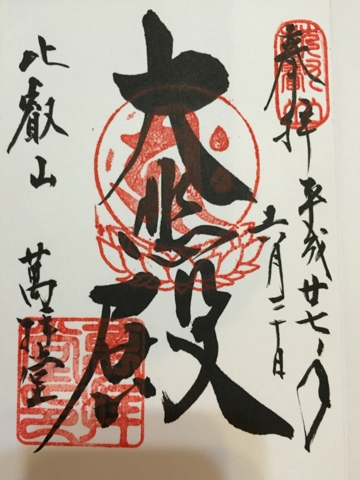 奉拝 平成廿七年
月二十日
大悲殿
比叡山 萬拝堂